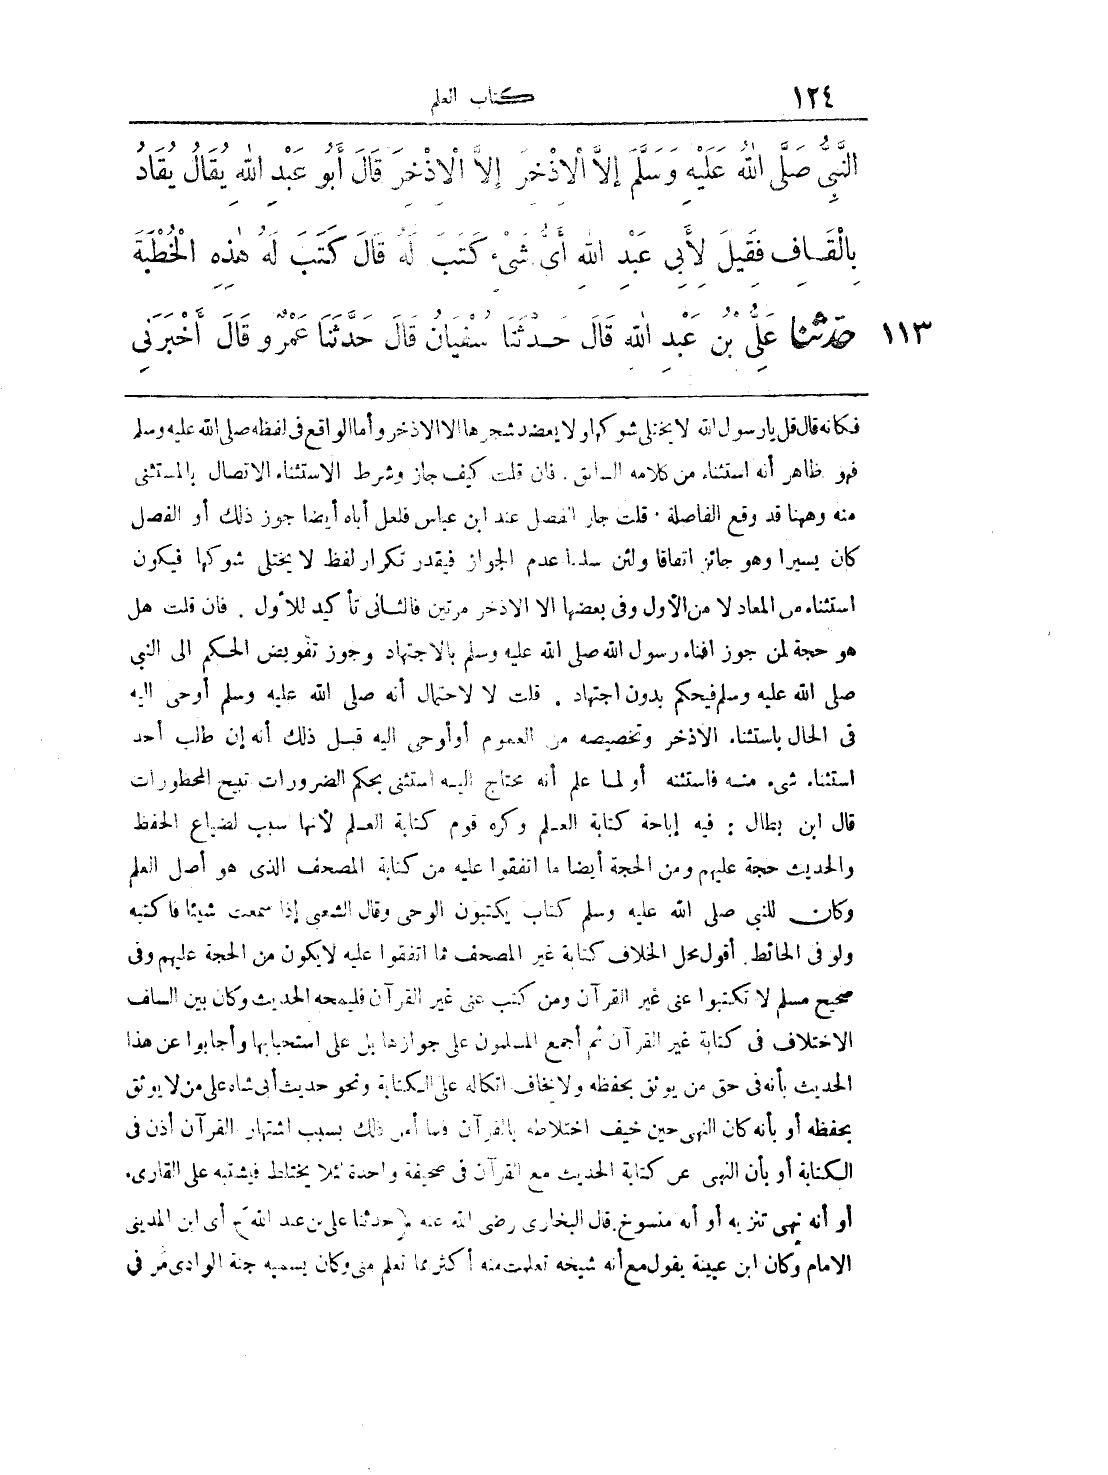 ١٢٤
كتاب العلم
النَّبِيُّ صَلَّى اللهُ عَلَيْهِ وَسَلَّمَ إِلاَّ الْاِذْخِرَ إِلاَّ الْاِذْخِرَ قَالَ أَبُو عَبْدِ اللهِ يُقَالُ يُقَادُ
بِالْقَافِ فَقِيلَ لِأَبِي عَبْدِ اللهِ أَىُّ شَىْءٍ كَتَبَ لَهُ قَالَ كَتَبَ لَهُ هٰذِهِ الْخُطْبَةَ
١١٣ حَدَّثَنَا عَلِىُّ بْنُ عَبْدِ اللهِ قَالَ حَدَّثَنَا سُفْيَانُ قَالَ حَدَّثَنَا عَمْرٌو قَالَ أَخْبَرَنِى
فكانه قال قل يارسول الله لا يختلى شوكها ولا يعضد شجرها الا الاذخر وأما الواقع فى لفظه صلى الله عليه وسلم
فهو ظاهر أنه استثناء من كلامه السابق. فان قلت كيف جاز وشرط الاستثناء الاتصال بالمستثنى
منه وههنا قد وقع الفاصلة. قلت جاز الفصل عند ابن عباس فلعل أباه أيضا جوز ذلك أو الفصل
كان يسيرا وهو جائز اتفاقا ولئن سلمنا عدم الجواز فيقدر تكرار لفظ لا يختلى شوكها فيكون
استثناء من المعاد لا من الأول وفى بعضها الا الاذخر مرتين فالثانى تأكيد للأول. فان قلت هل
هو حجة لمن جوز افتاء رسول الله صلى الله عليه وسلم بالاجتهاد وجوز تفويض الحكم الى النبي
صلى الله عليه وسلم فيحكم بدون اجتهاد. قلت لا لاحتمال أنه صلى الله عليه وسلم أوحى اليه
فى الحال باستثناء الاذخر وتخصيصه من العموم أو أوحى اليه قبل ذلك أنه إن طلب أحد
استثناء شىء منه فاستثنه أو لما علم أنه محتاج اليه استثنى بحكم الضرورات تبيح المحظورات
قال ابن بطال: فيه إباحة كتابة العلم وكره قوم كتابة العلم لأنها سبب لضياع الحفظ
والحديث حجة عليهم ومن الحجة أيضا ما اتفقوا عليه من كتابة المصحف الذى هو أصل العلم
وكان للنبي صلى الله عليه وسلم كتاب يكتبون الوحى وقال الشعبى إذا سمعت شيئا فاكتبه
ولو فى الحائط. أقول محل الخلاف كتابة غير المصحف مما اتفقوا عليه لا يكون من الحجة عليهم وفى
صحيح مسلم لا تكتبوا عنى غير القرآن ومن كتب عنى غير القرآن فليمحه الحديث وكان بين السلف
الاختلاف فى كتابة غير القرآن ثم أجمع المسلمون على جوازها بل على استحبابها وأجابوا عن هذا
الحديث بأنه فى حق من يوثق بحفظه ولا يخاف اتكاله على الكتابة ونحو حديث أبى شاه على من لا يوثق
بحفظه أو بأنه كان النهى حين خيف اختلاطه بالقرآن فلما أمن ذلك بسبب اشتهار القرآن أذن فى
الكتابة أو بأن النهى عن كتابة الحديث مع القرآن فى صحيفة واحدة لئلا يختلط فيشتبه على القارى.
أو أنه نهى تنزيه أو أنه منسوخ. قال البخارى رضى الله عنه ﴿حدثنا على بن عبد الله﴾ أى ابن المدينى
الامام وكان ابن عيينة يقول مع أنه شيخه تعلمت منه أكثر مما تعلم منى وكان يسميه جنة الوادى مر فى